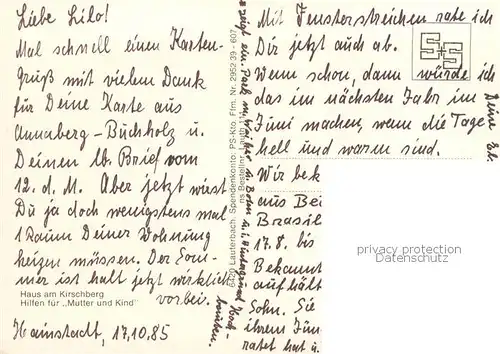 Liebe Lilo!
Mal schnell einen Karten-
gruß mit vielem Dank
für Deine Karte aus
Annaberg-Buchholz u.
Deinen lb. Brief vom
12. d. M. Aber jetzt wirst
Du ja doch wenigstens mal
1 Raum Deiner Wohnung
heizen müssen. Der Som-
mer ist halt jetzt wirklich
vorbei.
Haus am Kirschberg
Hilfen für „Mutter und Kind"
Hainstadt, 17.10.85
6420 Lauterbach. Spendenkonto: PS-Kto. Ffm. Nr. 2952 39 - 607
zeigt ein. Park m. u. Bohn u. i. Hintergrund Hoch-
bauten.
Mit Fensterstreichen rate ich
Dir jetzt auch ab.
Wenn schon, dann würde ich
das im nächsten Jahr im
Juni machen, wenn die Tage
hell und warm sind.
Wir bek
aus Bei
Brasil
17.8. bis
Bekannt
aufhält
Sohn. Sie
ihrem Jün
ratet hat u
Deine
privacy protection